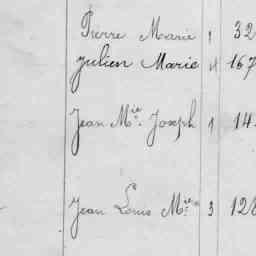 Pierre Marie 1 32
Julien Marie 4 167
Jean M.ie Joseph 1 14
Jean Louis M.ie 3 128